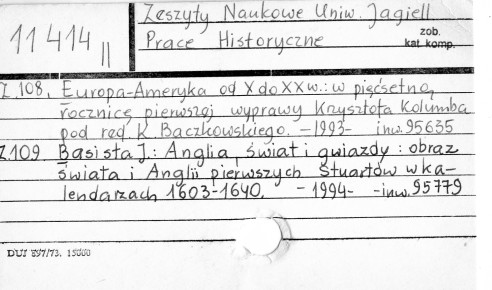 Zeszyty Naukowe Uniw. Jagiell.
11414 II
Prace Historyczne
zob.
kat. komp.
Z.108. Europa-Ameryka od X do XX w.: w pięćsetną
rocznicę pierwszej wyprawy Krzysztofa Kolumba
pod red. K. Baczkowskiego. -1993- inw. 95635
Z.109. Basista J.: Anglia, świat i gwiazdy: obraz
świata i Anglii pierwszych Stuartów w ka-
lendarzach 1603-1640. -1994- -inw. 95779
DUJ 897/73. 15000